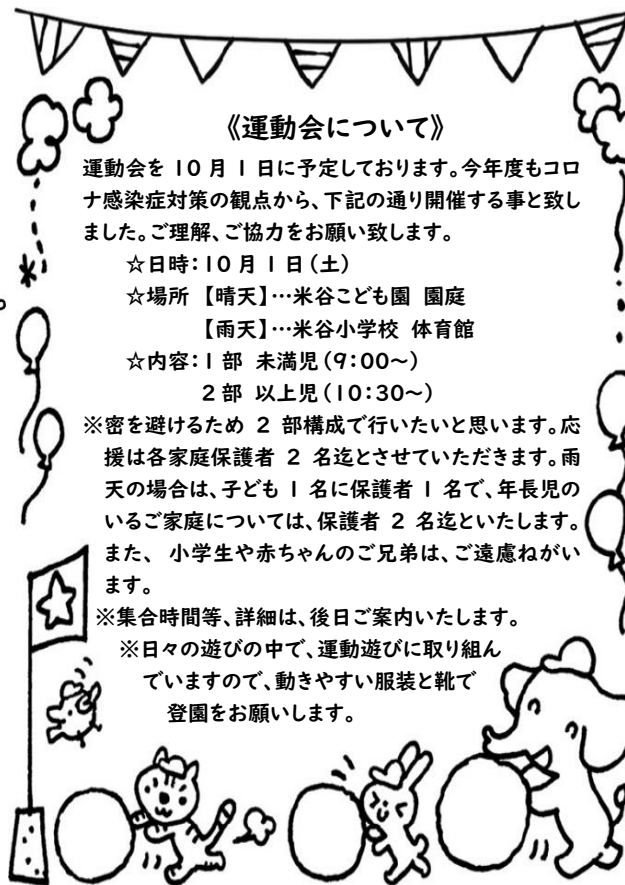 《運動会について》
運動会を 10 月 1 日に予定しております。今年度もコロ
ナ感染症対策の観点から、下記の通り開催する事と致し
ました。ご理解、ご協力をお願い致します。
☆日時：10 月 1 日（土）
☆場所 【晴天】…米谷こども園 園庭
【雨天】…米谷小学校 体育館
☆内容：1 部 未満児（9：00～）
2 部 以上児（10：30～）
※密を避けるため 2 部構成で行いたいと思います。応
援は各家庭保護者 2 名迄とさせていただきます。雨
天の場合は、子ども 1 名に保護者 1 名で、年長児の
いるご家庭については、保護者 2 名迄といたします。
また、 小学生や赤ちゃんのご兄弟は、ご遠慮ねがい
ます。
※集合時間等、詳細は、後日ご案内いたします。
※日々の遊びの中で、運動遊びに取り組ん
でいますので、動きやすい服装と靴で
登園をお願いします。